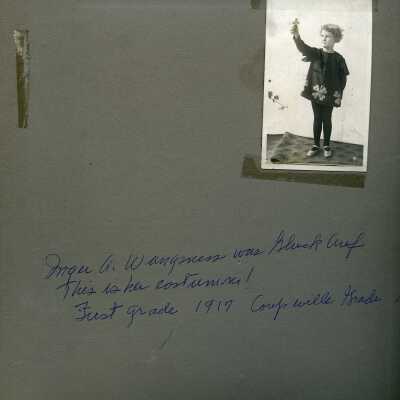 Inger A. Wangsness was Gluck Auf
This is her costume!
First grade 1917 Coupeville Grade